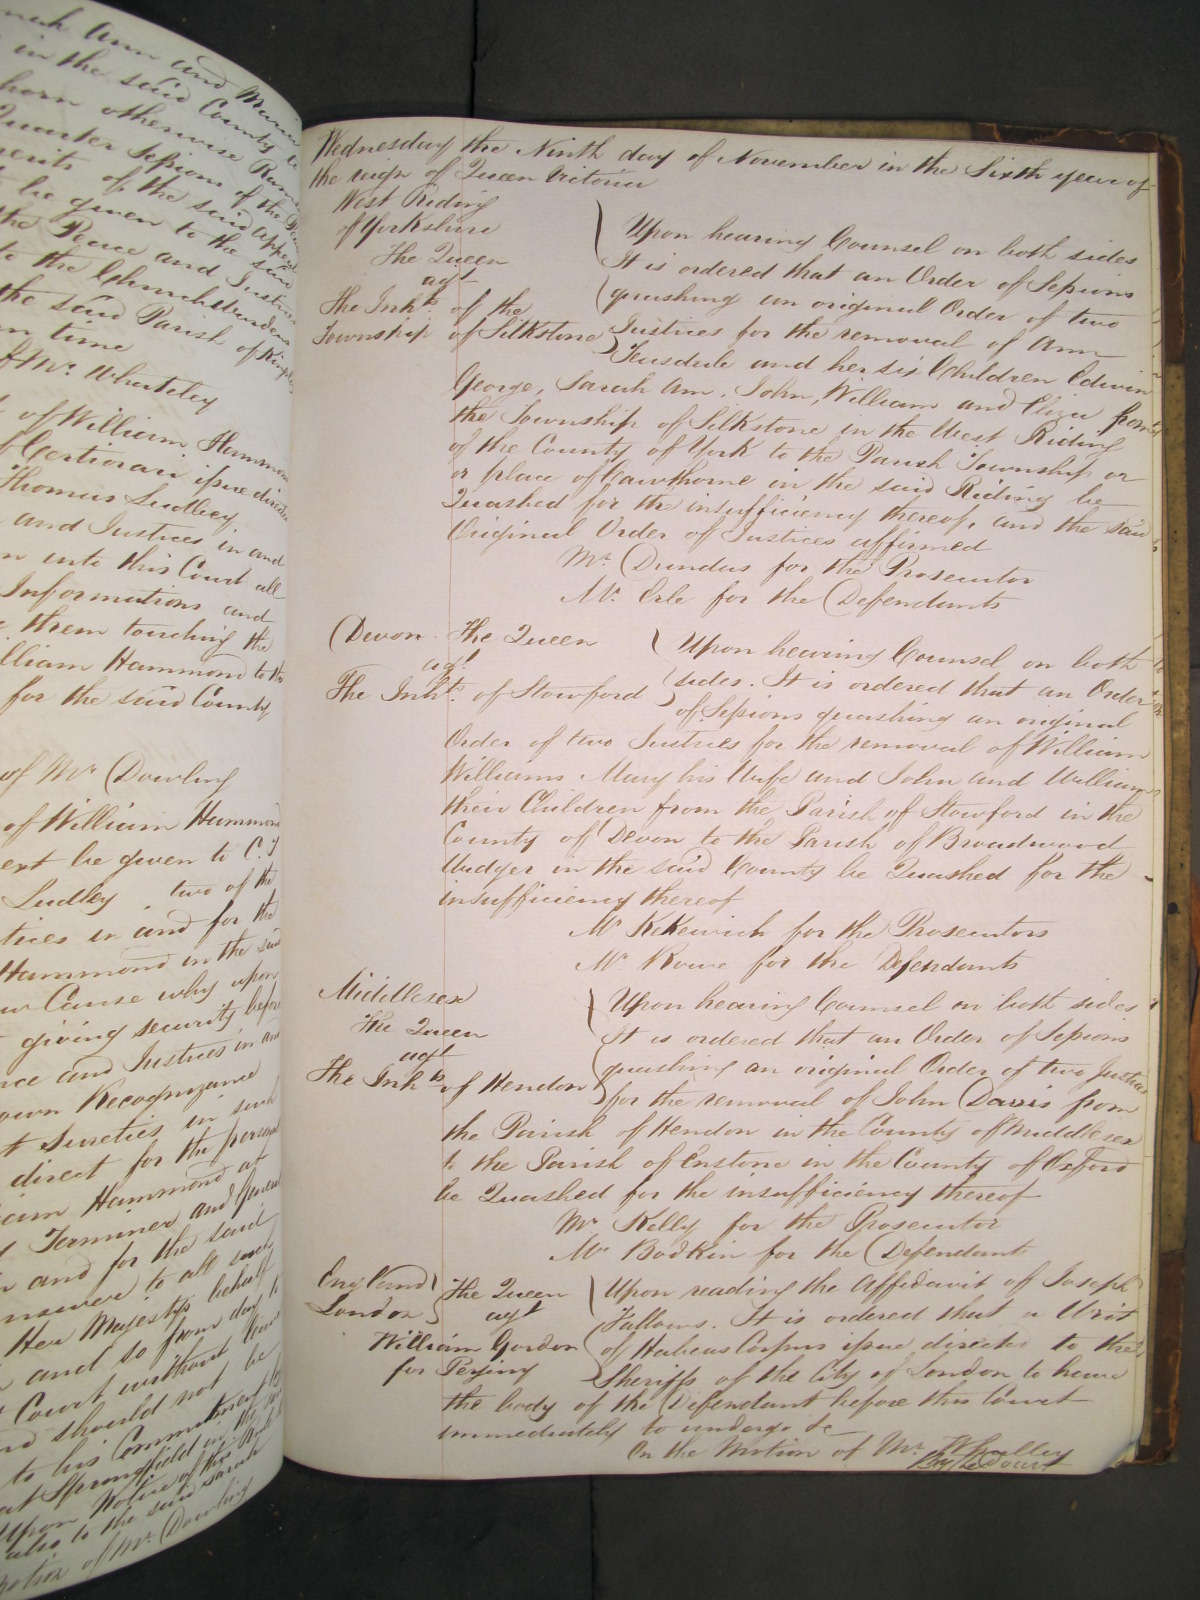 Ann and
in the said County
born otherwise
Quarter Sessions of the
merits of the said
be given to the said
the Peace and
to the Churchwardens
the said Parish of
time
Mr. Whateley
of William Hammon
Certiorari issue
Thomas Ludley
and Justices in and
unto this Court all
Informations and
them touching the
William Hammond to the
for the said County
of Mr. Dowling
of William Hammond
be given to
Ludley two of the
in and for the
Hammond in the said
Cause why upon
giving security before
and Justices in and
own Recognizance
Sureties in such
direct for the
Hammond at
Terminer and
and for the said
answer to all such
Her Majesty's behalf
and so from day to
Court without
should not be
to his Commitment
at Springfield in the
Upon Notice of this
also to the said Sarah
Motion of Mr. Dowling
Wednesday the Ninth day of November in the Sixth year of
the reign of Queen Victoria
West Riding
of Yorkshire
The Queen
agt
The Inhts. of the
Township of Silkstone
Upon hearing Counsel on both sides
It is ordered that an Order of Sessions
quashing an original Order of two
Justices for the removal of Ann
Teasdale and her six Children Edwin
George, Sarah Ann, John, William and Eliza from
the Township of Silkstone in the West Riding
of the County of York to the Parish Township or
or place of Cawthorne in the said Riding be
Quashed for the insufficiency thereof, and the said
Original Order of Justices affirmed
Mr. Dundas for the Prosecutor
Mr. Erle for the Defendants
Devon. The Queen
agt.
The Inhts. of Stowford
Upon hearing Counsel on both
sides. It is ordered that an Order
of Sessions quashing an original
Order of two Justices for the removal of William
Williams Mary his Wife and John and William
their Children from the Parish of Stowford in the
County of Devon to the Parish of Broadwood
Widger in the said County be Quashed for the
insufficiency thereof
Mr Kekewich for the Prosecutors
Mr. Rowe for the Defendants
Middlesex
The Queen
agt
The Inhts of Hendon
Upon hearing Counsel on both sides
It is ordered that an Order of Sessions
quashing an original Order of two Justices
for the removal of John Davis from
the Parish of Hendon in the County of Middlesex
to the Parish of Enstone in the County of Oxford
be Quashed for the insufficiency thereof
Mr Kelly for the Prosecutor
Mr Bodkin for the Defendant
England
London
The Queen
agt
William Gordon
for Perjury
Upon reading the Affidavit of Joseph
Fallows. It is ordered that a Writ
of Habeas Corpus issue directed to the
Sheriffs of the City of London to have
the body of the Defendant before this Court
immediately to undergo &c
On the Motion of Mr. Whalley
By the Court